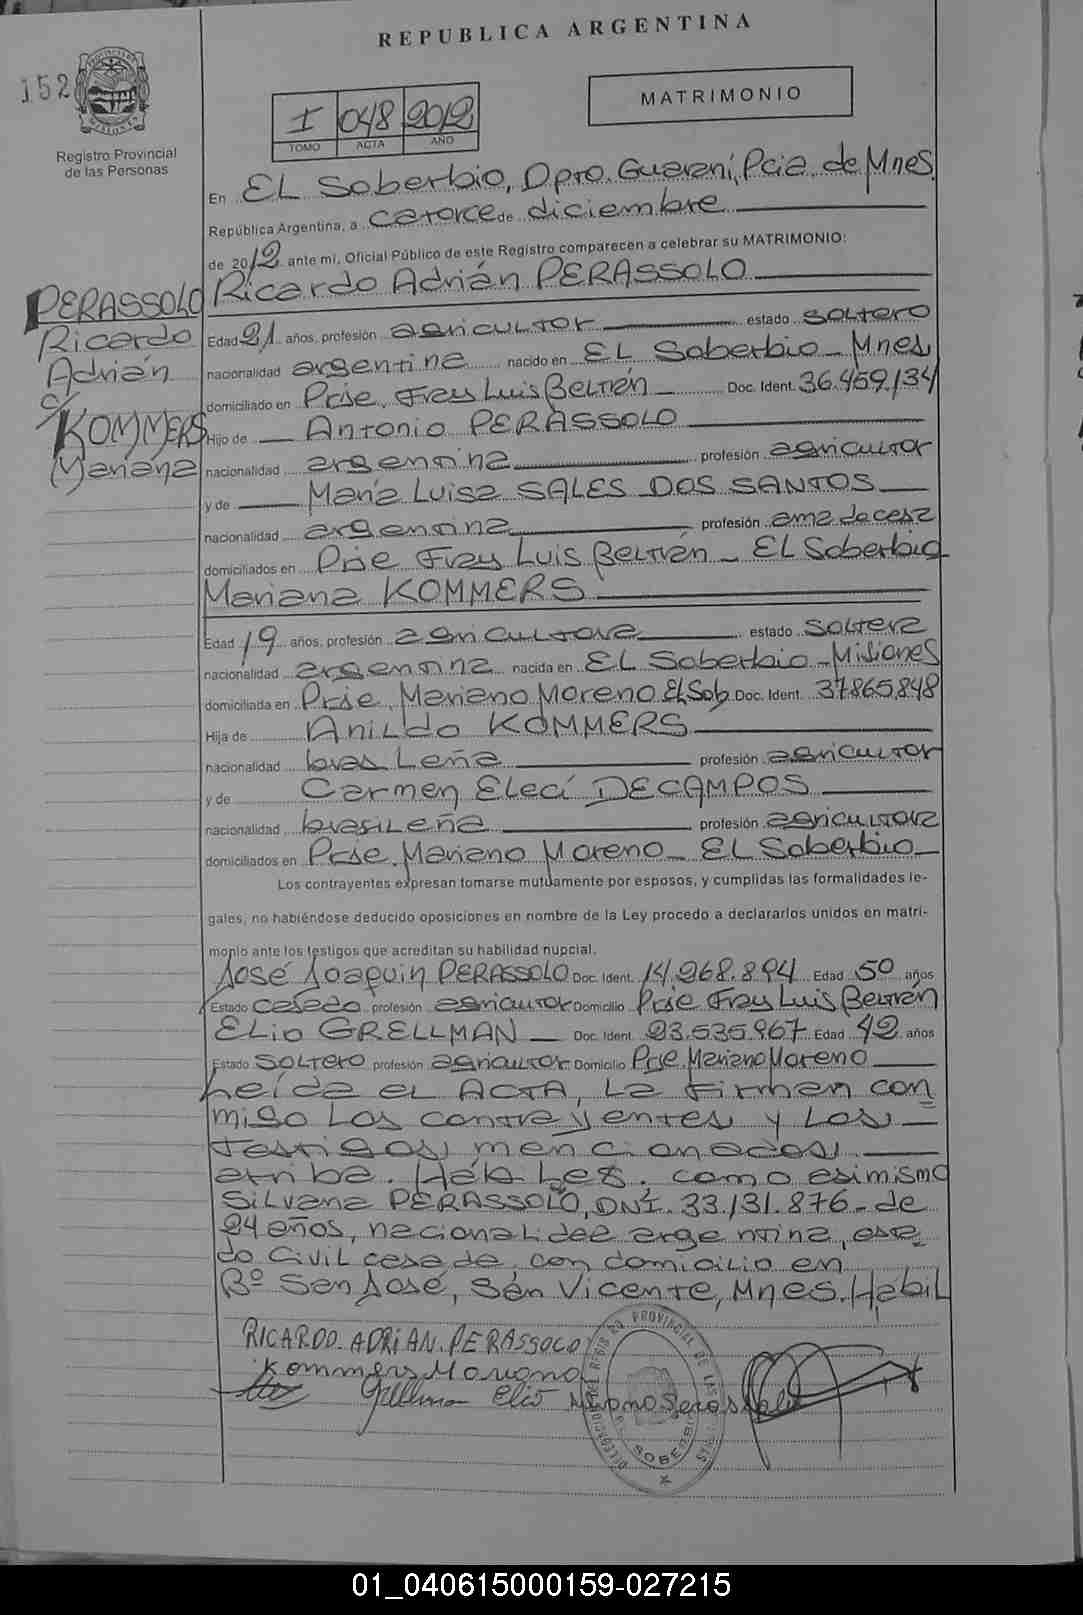 REPUBLICA ARGENTINA
152
MATRIMONIO
I 048 2012
TOMO ACTA AÑO
Registro Provincial
de las Personas
En EL Soberbio, Dpto. Guaraní, Pcia. de Mnes.
República Argentina, a catorce de diciembre
de 2012 ante mi, Oficial Público de este Registro comparecen a celebrar su MATRIMONIO:
Ricardo Adrián PERASSOLO
PERASSOLO
Ricardo
Adrián
c/
KOMMERS
Mariana
Edad 21 años, profesión agricultor estado soltero
nacionalidad argentina nacido en EL Soberbio - Mnes
domiciliado en Prje. Fray Luis Beltrán Doc. Ident. 36.459.134
Hijo de Antonio PERASSOLO
nacionalidad argentina profesión agricultor
y de María Luisa SALES DOS SANTOS
nacionalidad argentina profesión ama de casa
domiciliados en Prje Fray Luis Beltrán - EL Soberbio
Mariana KOMMERS
Edad 19 años, profesión agricultora estado soltera
nacionalidad argentina nacida en EL Soberbio - Misiones
domiciliada en Prje. Mariano Moreno El Sob. Doc. Ident. 37.865.848
Hija de Anildo KOMMERS
nacionalidad brasileña profesión agricultor
y de Carmen Elecí DECAMPOS
nacionalidad brasileña profesión agricultora
domiciliados en Prje. Mariano Moreno - EL Soberbio
Los contrayentes expresan tomarse mutuamente por esposos, y cumplidas las formalidades le-
gales, no habiéndose deducido oposiciones en nombre de la Ley procedo a declararlos unidos en matri-
monio ante los testigos que acreditan su habilidad nupcial.
José Joaquin PERASSOLO Doc. Ident. 14.268.894 Edad 50 años
Estado casado profesión agricultor Domicilio Prje Fray Luis Beltrán
Elio GRELLMAN Doc. Ident. 23.535.967 Edad 42 años
Estado soltero profesión agricultor Domicilio Prje. Mariano Moreno
Leída el ACTA, la firman con
migo los contrayentes y los
testigos mencionados
arriba. Hábiles. como asimismo
Silvana PERASSOLO, DNI. 33.131.876 - de
24 años, nacionalidad argentina, esta
do civil casada con domicilio en
Bº San José, San Vicente, Mnes. Habil
RICARDO. ADRIAN. PERASSOLO
Kommers Mariana
Grellman Elio
REGISTRO PROVINCIAL DE LAS
SOBERBIO
01_040615000159-027215